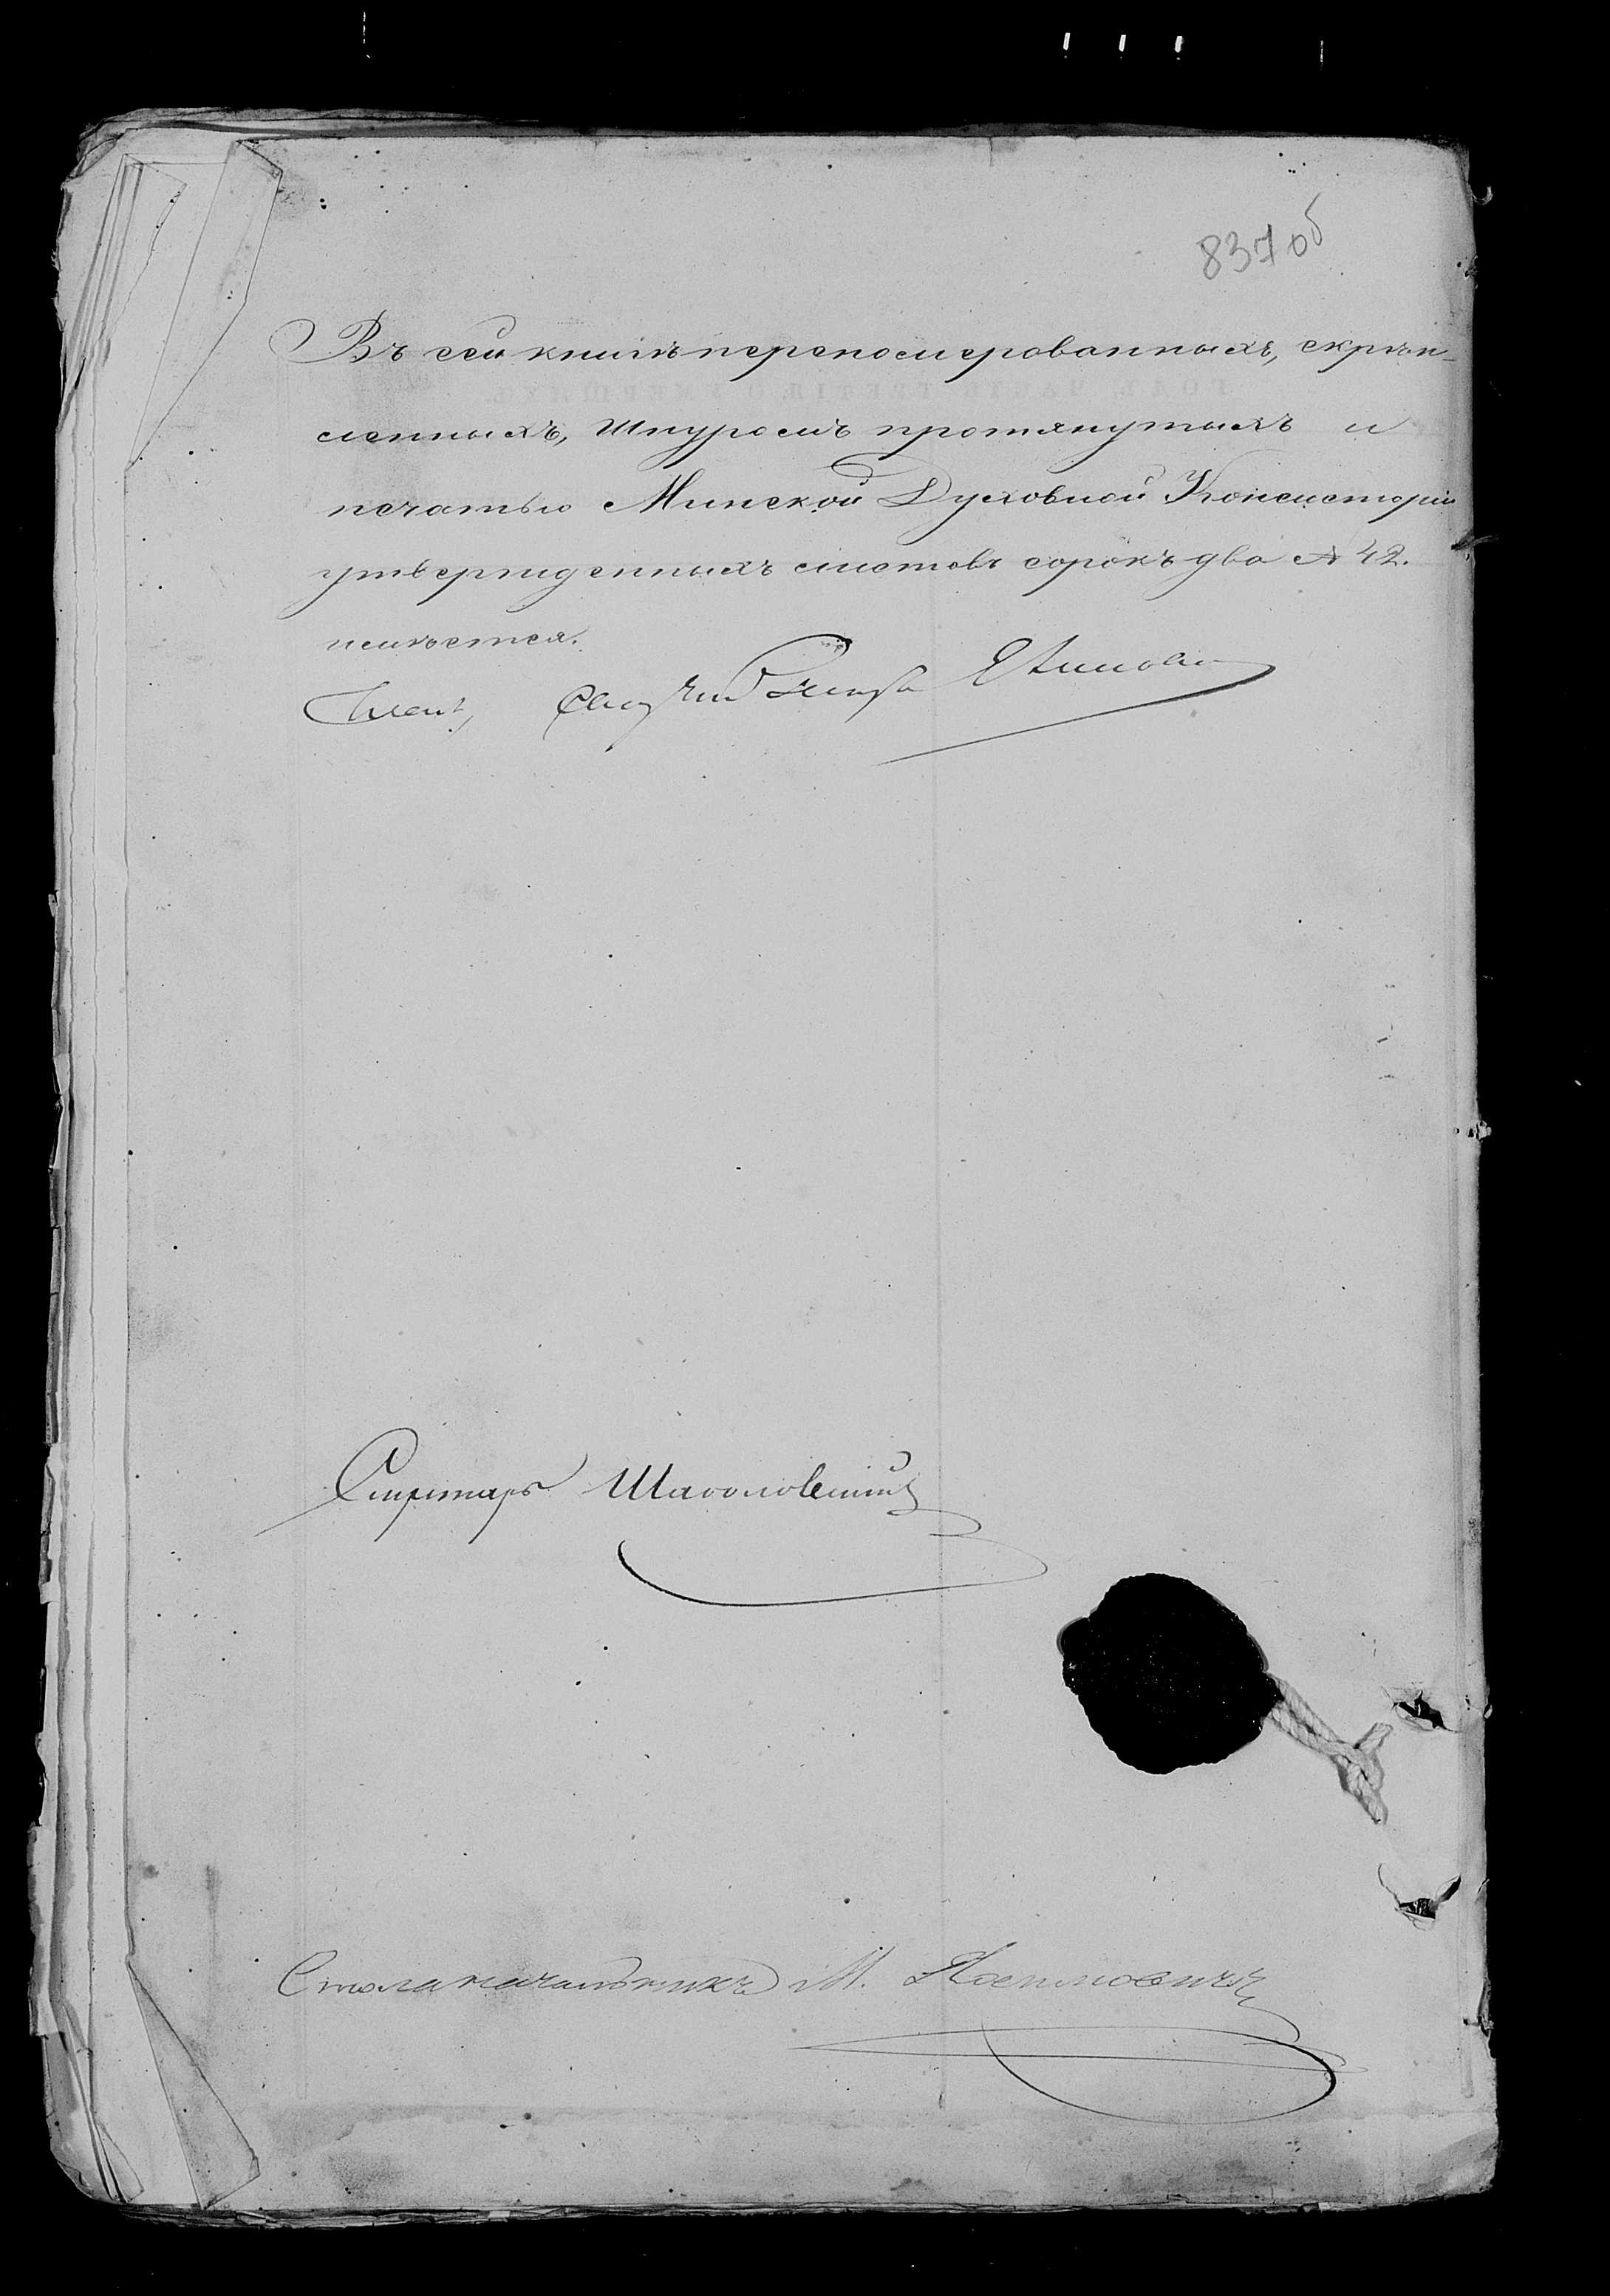 837 об
Въ сей книгѣ переномерованныхъ, скрѣп-
ленныхъ, шнуромъ протянутыхъ и
печатью Минской Духовной Консисторіи
утвержденныхъ листовъ сорокъ два № 42.
имѣется.
Членъ,
Секретарь
Столоначальникъ М.